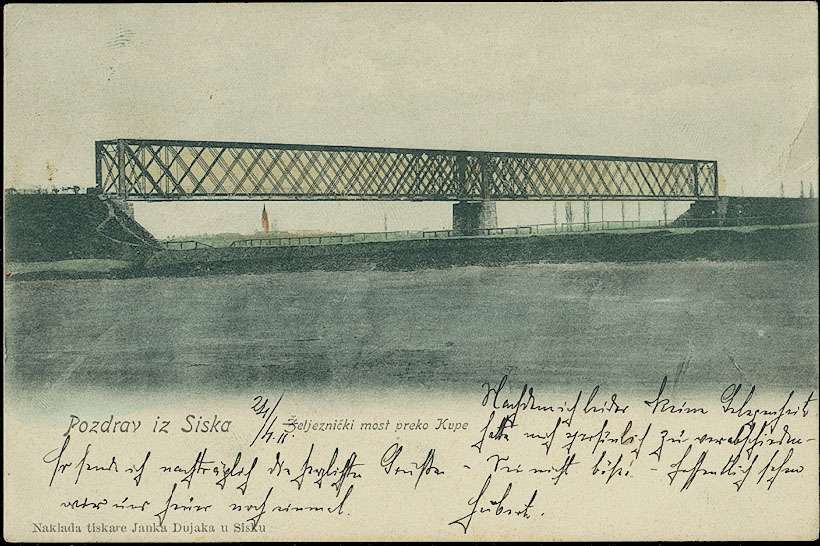 Pozdrav iz Siska
Željeznički most preko Kupe
Nachdem ich leider keine Gelegenheit
hatte mich persönlich zu verabschieden-
So sende ich nachträglich die herzlichsten Grüße
- Sei nicht böse. - Hoffentlich sehen
wir uns heuer noch einmal.
Hubert.
Naklada tiskare Janka Dujaka u Sisku